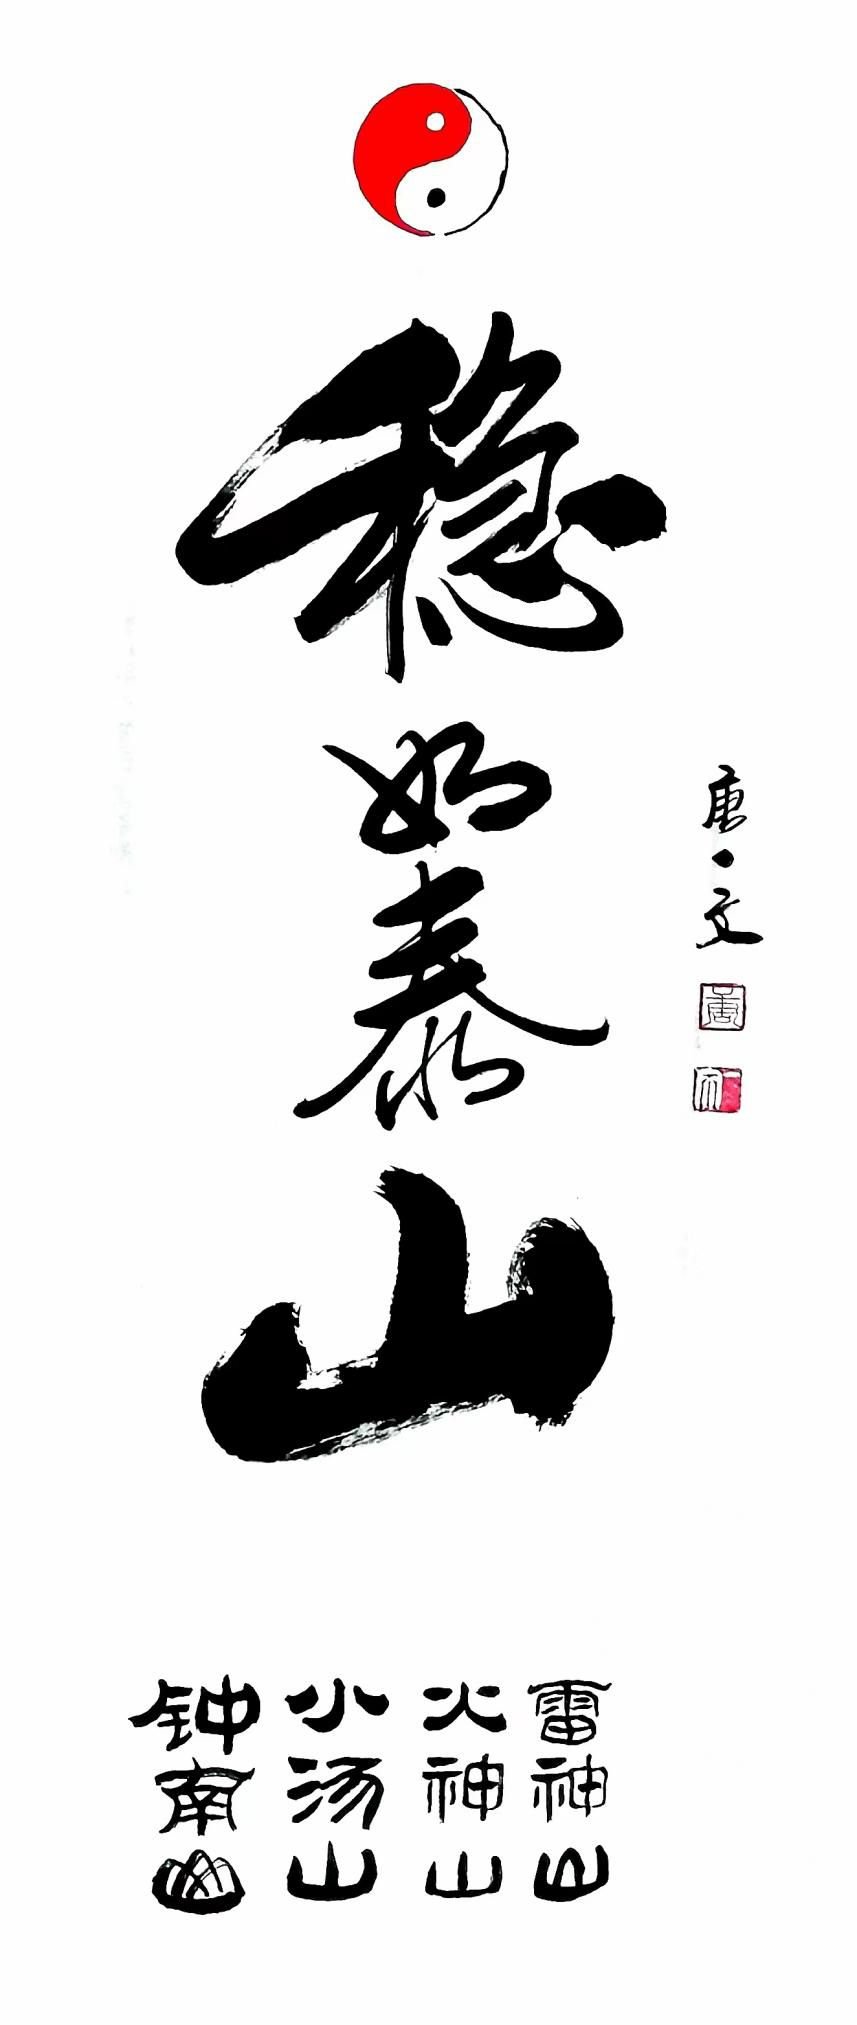 稳如泰山
唐一文
雷神山
火神山
小汤山
钟南山